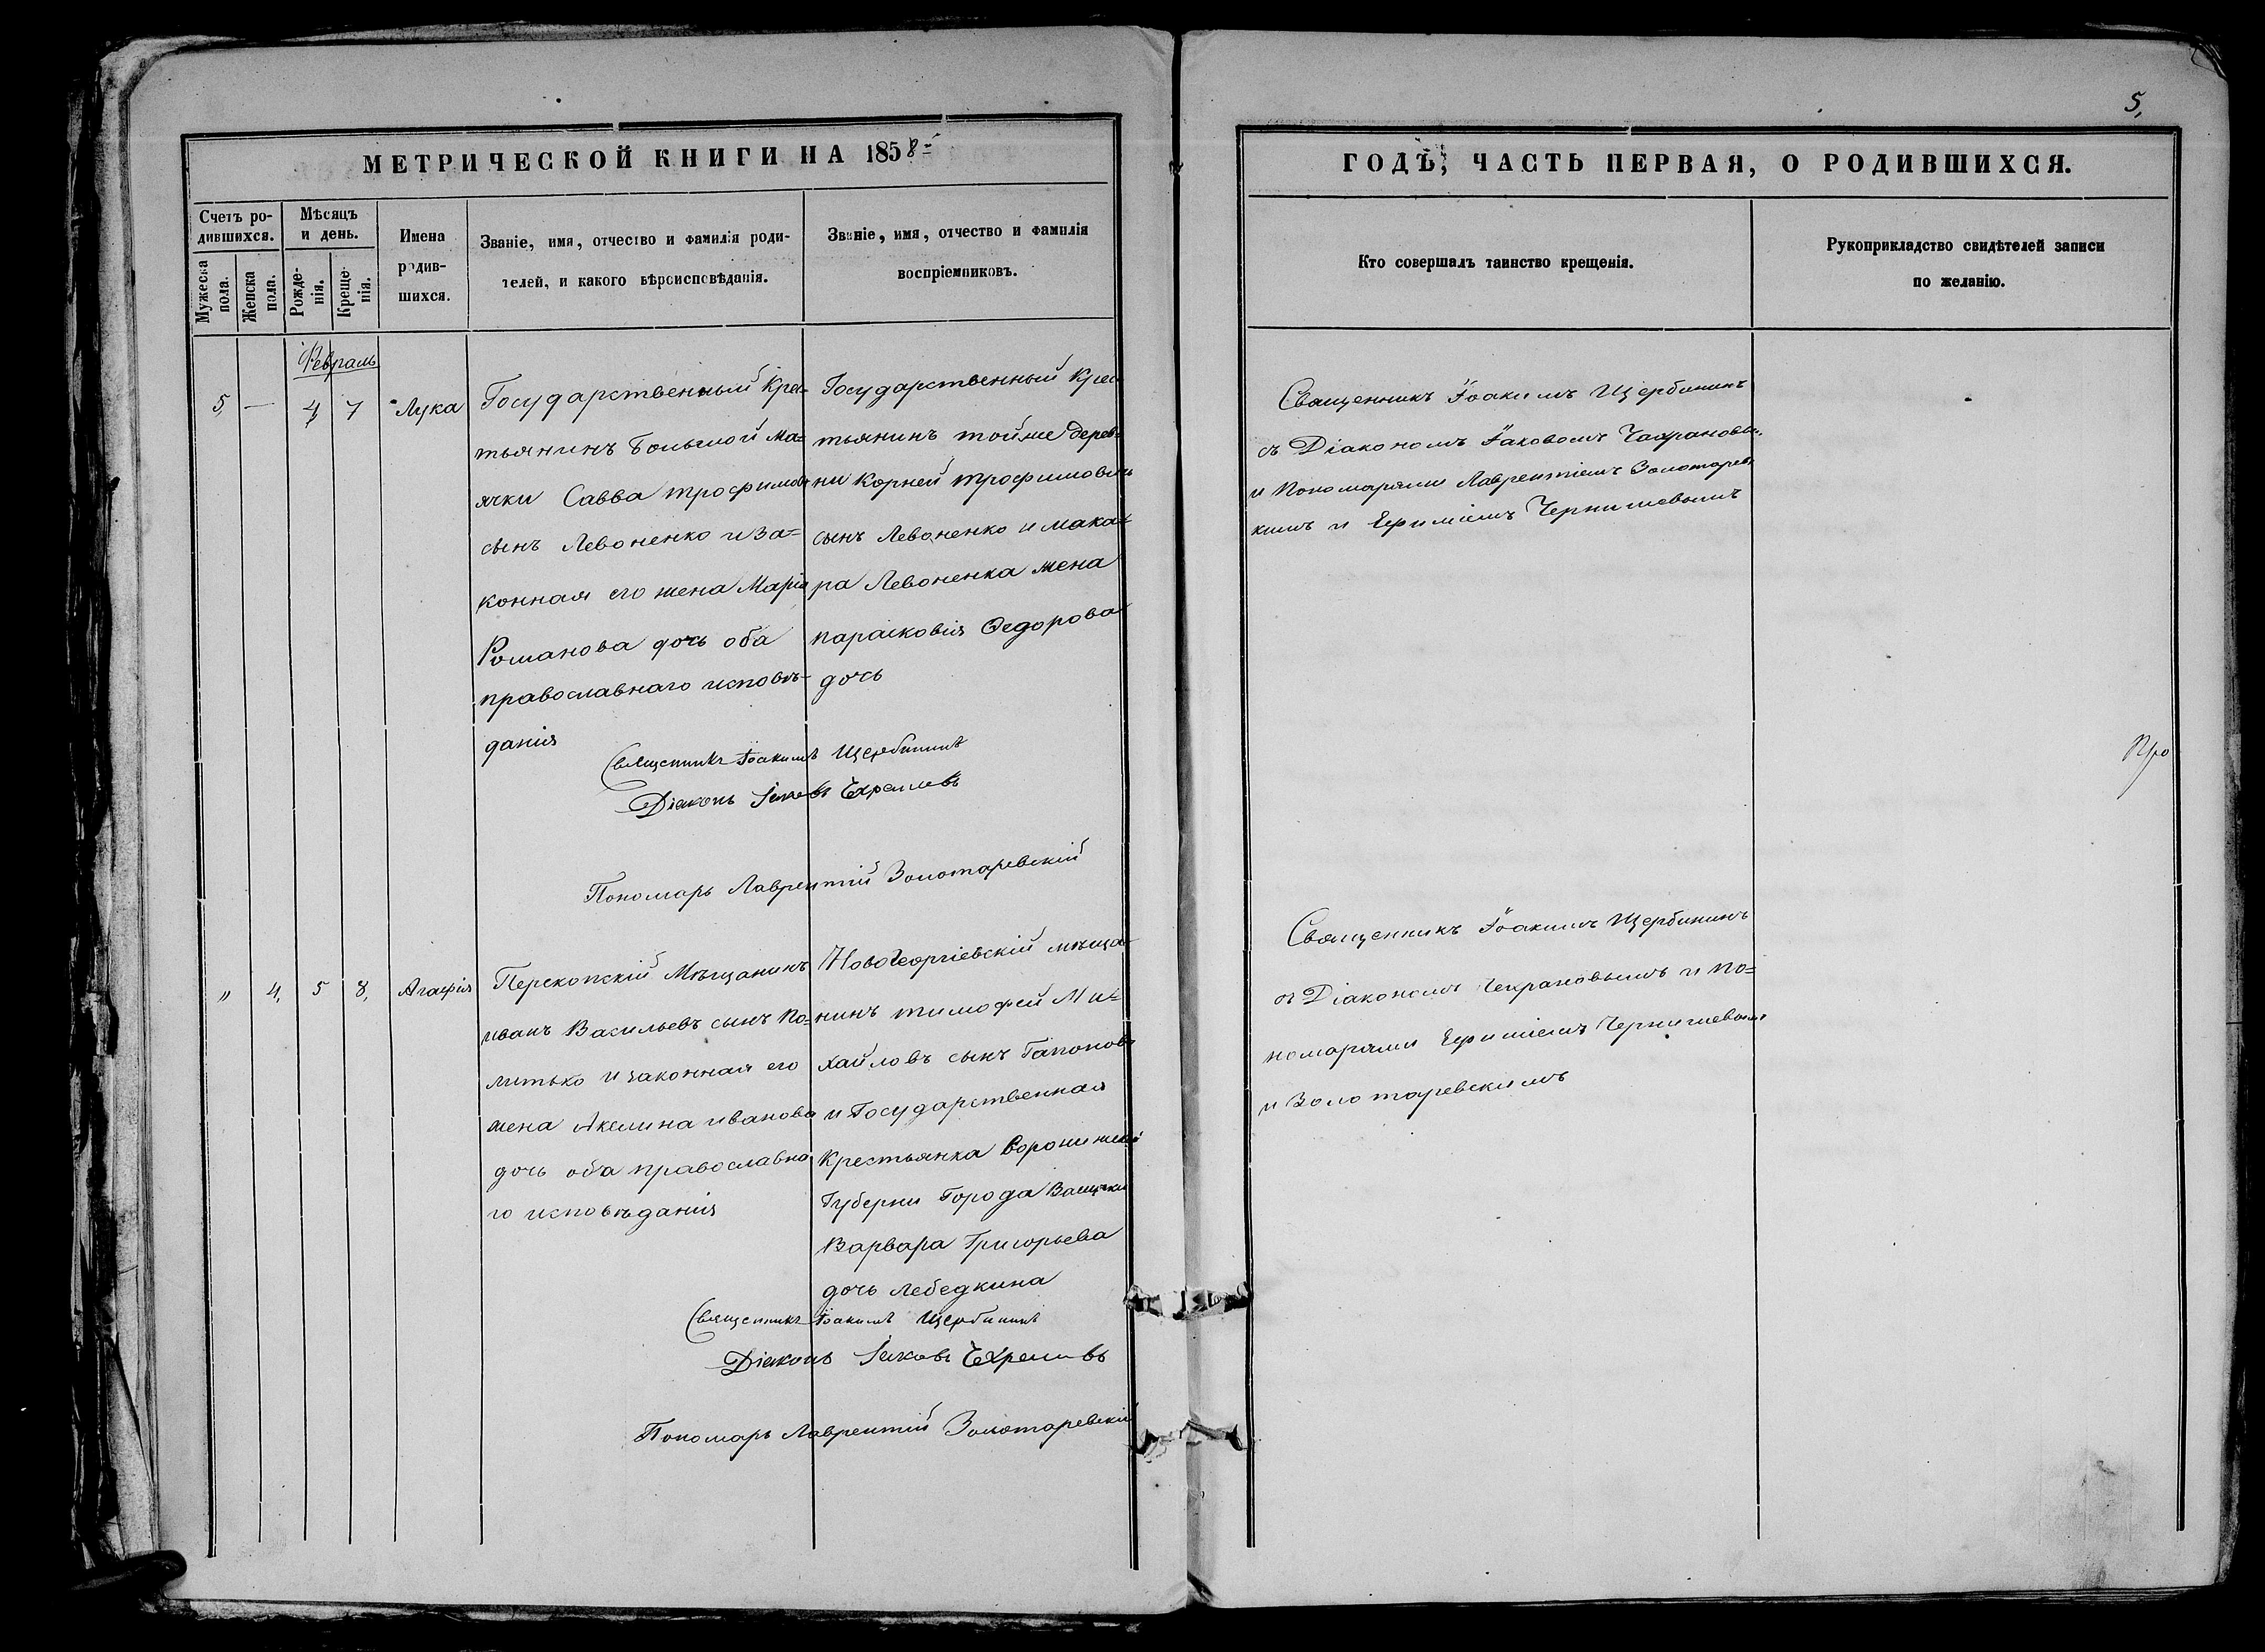 5,
МЕТРИЧЕСКОЙ КНИГИ НА 1858
ГОДЪ, ЧАСТЬ ПЕРВАЯ, О РОДИВШИХСЯ.
Счетъ ро-
дившихся.
Мужеска
пола.
Женска
пола.
Мѣсяцъ
и день.
Рожде-
нія.
Креще-
нія.
Имена
родив-
шихся.
Званіе, имя, отчество и фамилія роди-
телей, и какого вѣроисповѣданія.
Званіе, имя, отчество и фамилія
воспріемниковъ.
Кто совершалъ таинство крещенія.
Рукоприкладство свидѣтелей записи
по желанію.
Февраль
5, — 4, 7 Лука
Государственный Крес-
тьянинъ Большой Ма=
ячки Савва трофимовъ
сынъ Левоненко и за=
конная его жена Марія
Романова дочь оба
православнаго исповѣ-
данія
Государственный Крес
тьянинъ тойже дерев-
ни Корней трофимовъ
сынъ Левоненко и Мака=
ра Левоненка жена
парасковія Ѳедорова
дочь
Священникъ Іоакимъ Щербининъ
съ Діакономъ Іаковомъ
и Пономарями Лаврентіемъ Золотарев
кимъ и Ефиміемъ Чернишевымъ
Священникъ Іоакимъ Щербининъ
Діаконъ Іаковъ
Пономарь Лаврентій Золотаревскій
Про
" 4, 5 8, Агафія
Перекопскій Мѣщанинъ
иванъ Васильевъ сынъ По=
литько и законная его
жена Акилина иванова
дочь оба православна
го исповѣданія
Новогеоргіевскій мѣща-
нинъ тимофей Ми=
хайловъ сынъ Гапоновъ
и Государственная
Крестьянка Воронижской
Губерни Города
Варвара Григорьева
дочь Лебедкина
Священникъ Іоакимъ Щербининъ
съ Діакономъ Чехрановымъ и По=
номарями Ефиміемъ Чернишевымъ
и Золотаревскимъ
Священникъ Іоакимъ Щербининъ
Діаконъ Іаковъ
Пономарь Лаврентій Золотаревскій